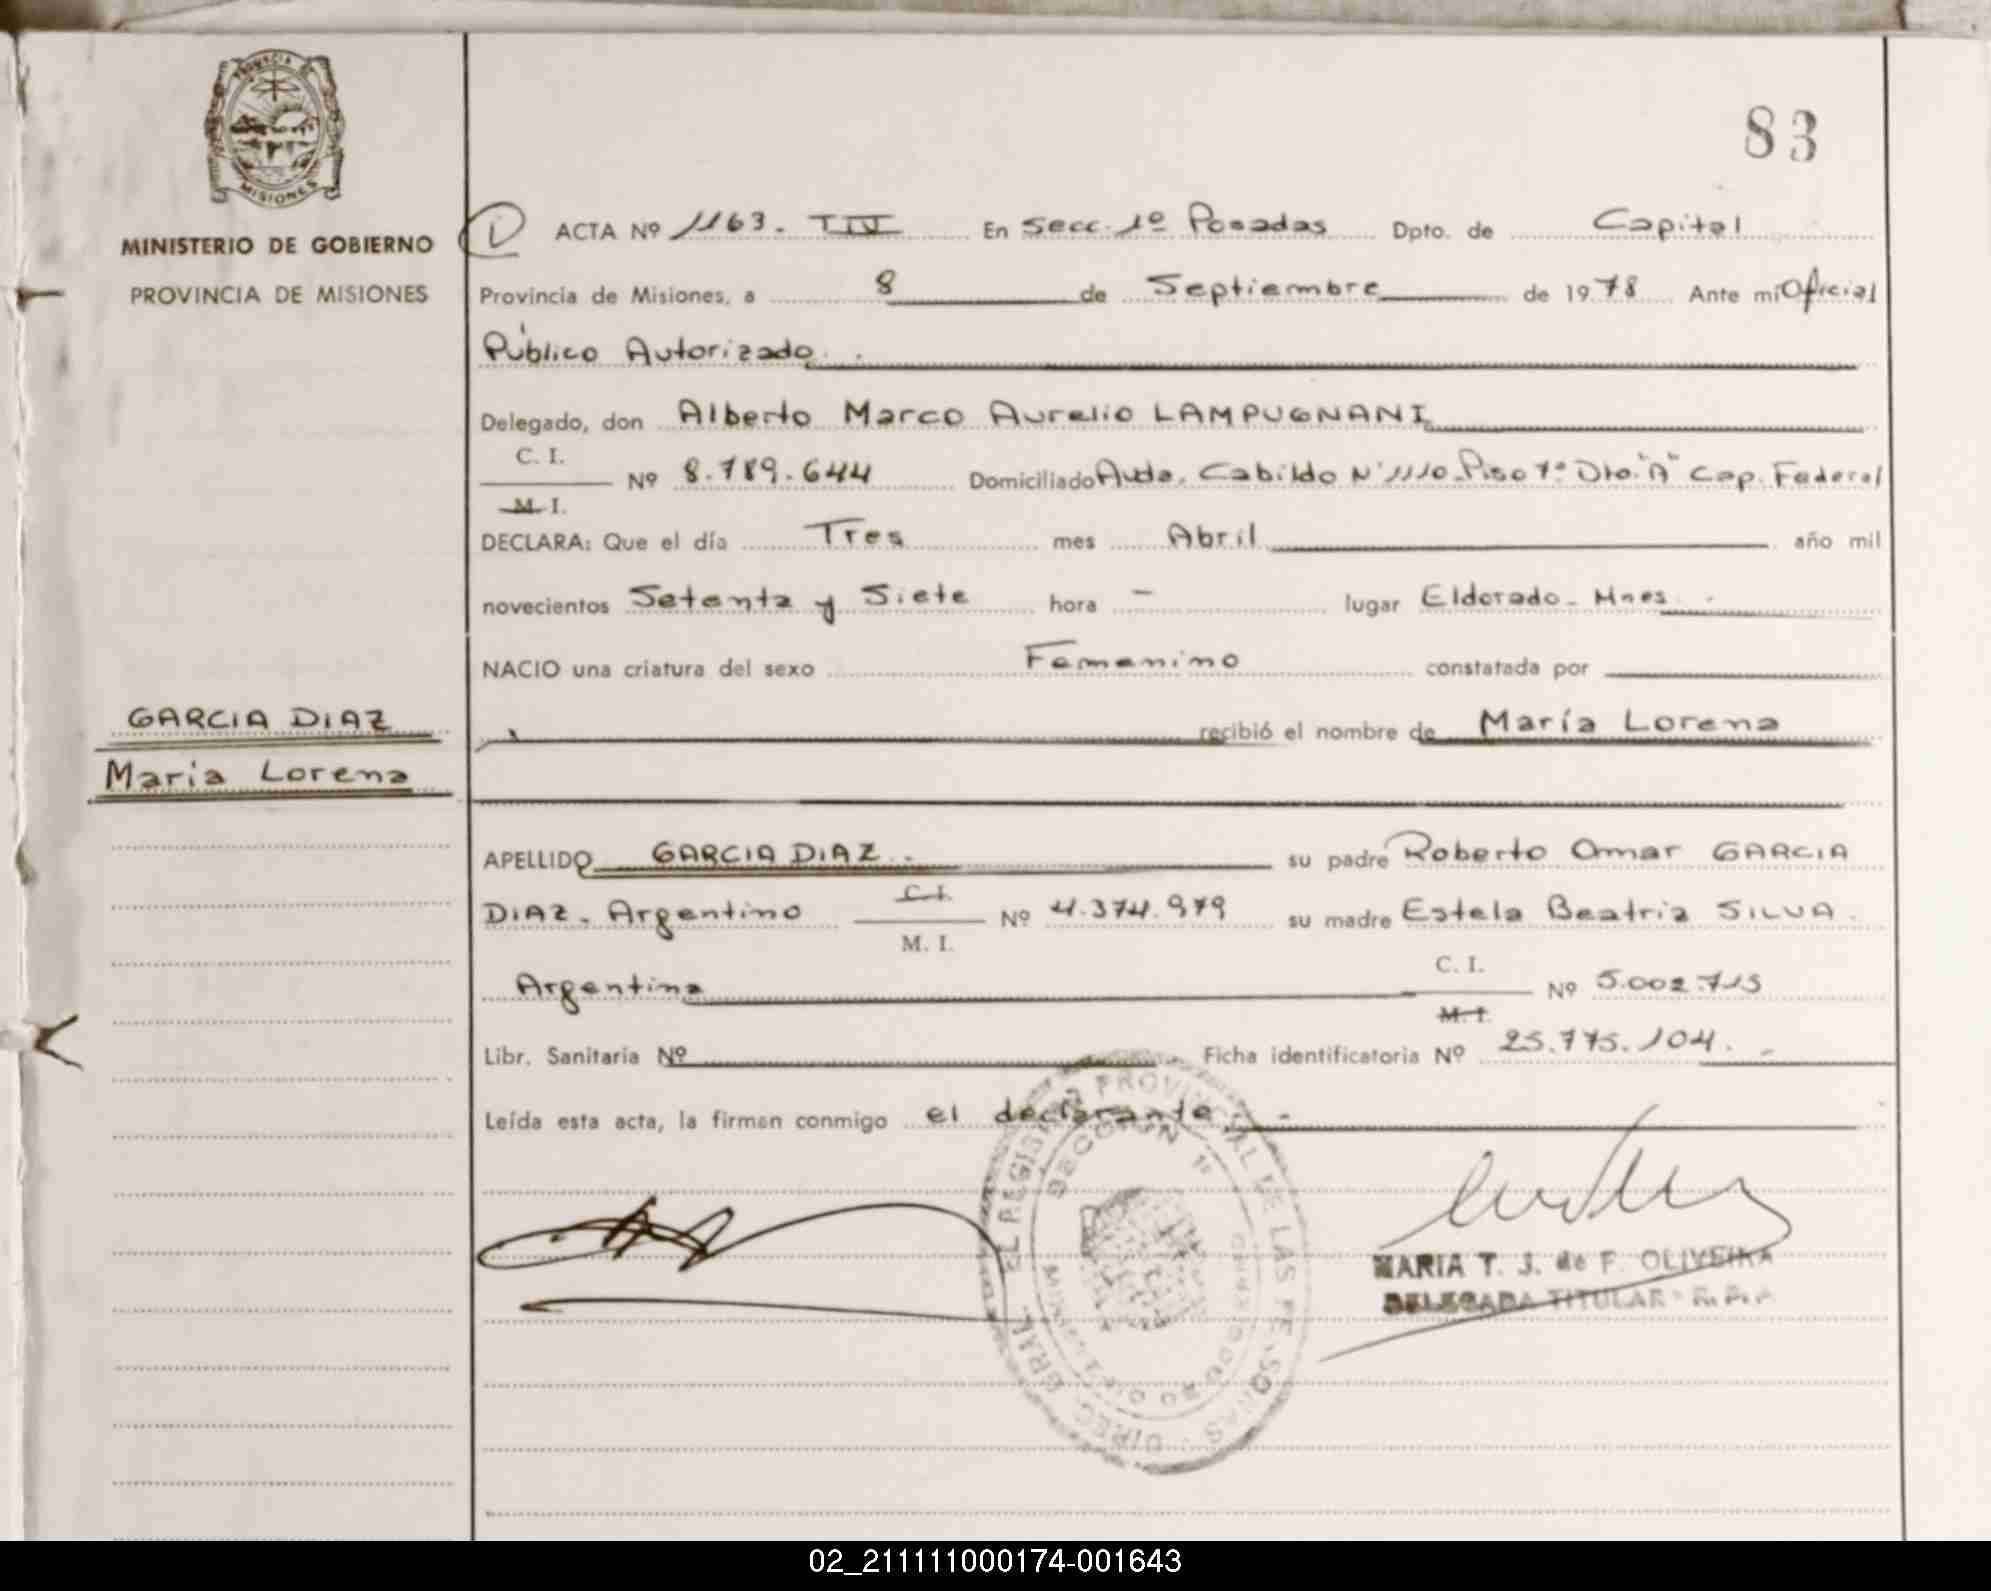 PROVINCIA DE
MISIONES
MINISTERIO DE GOBIERNO
PROVINCIA DE MISIONES
GARCIA DIAZ
María Lorena
83
ACTA Nº 1163. T IV En Secc. 1º Posadas Dpto. de Capital
Provincia de Misiones, a 8 de Septiembre de 1978 Ante mi Oficial
Público Autorizado.
Delegado, don Alberto Marco Aurelio LAMPUGNANI
C. I.
M. I.
Nº 8.789.644 Domiciliado Avda. Cabildo Nº 1110 Piso 7º Dto. "A" Cap. Federal
DECLARA: Que el día Tres mes Abril año mil
novecientos Setenta y Siete hora - lugar Eldorado - Mnes.
NACIO una criatura del sexo Femenino constatada por
recibió el nombre de María Lorena
APELLIDO GARCIA DIAZ.- su padre Roberto Omar GARCIA
C. I.
DIAZ - Argentino Nº 4.374.979 su madre Estela Beatriz SILVA.
M. I.
C. I.
Argentina Nº 5.002.715
M. I.
Libr. Sanitaria Nº Ficha identificatoria Nº 25.775.104. -
Leída esta acta, la firman conmigo el declarante.-
DIREC. GRAL. EL REGISTRO PROVINCIAL DE LAS PERSONAS
SECCION 1ª
MARIA T. J. de F. OLIVEIRA
DELEGADA TITULAR - R.P.P.
02_211111000174-001643